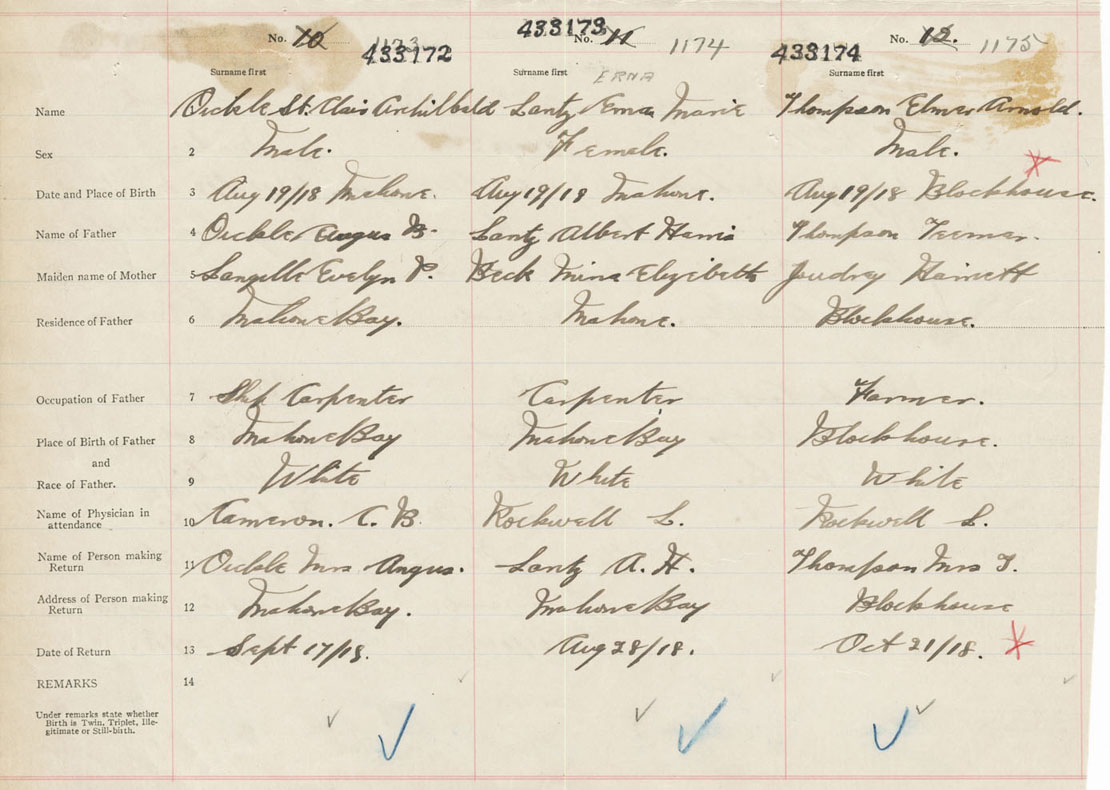 No. 10 1173 433172 433173 No. 11 1174 433174 No. 12. 1175
Surname first Surname first ERNA Surname first
Name Oickle St. Clair Archilbald Lantz Erna Marie Thompson Elmer Arnold.
Sex 2 Male. Female. Male.
Date and Place of Birth 3 Aug 19/18 Mahone. Aug 19/18 Mahone. Aug 19/18 Blockhouse.
Name of Father 4 Oickle Angus B. Lantz Albert Harris Thompson
Maiden name of Mother 5 Langille Evelyn P. Beck Mina Elizibeth Joudrey Harriett
Residence of Father 6 Mahone Bay. Mahone. Blockhouse.
Occupation of Father 7 Ship Carpenter Carpenter Farmer.
Place of Birth of Father 8 Mahone Bay Mahone Bay Blockhouse.
and
Race of Father. 9 White White White
Name of Physician in
attendance 10 Cameron. C. B. Rockwell L. Rockwell L.
Name of Person making
Return 11 Oickle Mrs Angus. Lantz A. H. Thompson Mrs T.
Address of Person making
Return 12 Mahone Bay. Mahone Bay Blockhouse
Date of Return 13 Sept 17/18. Aug 28/18. Oct 21/18.
REMARKS 14
Under remarks state whether
Birth is Twin, Triplet, Ille-
gitimate or Still-birth.